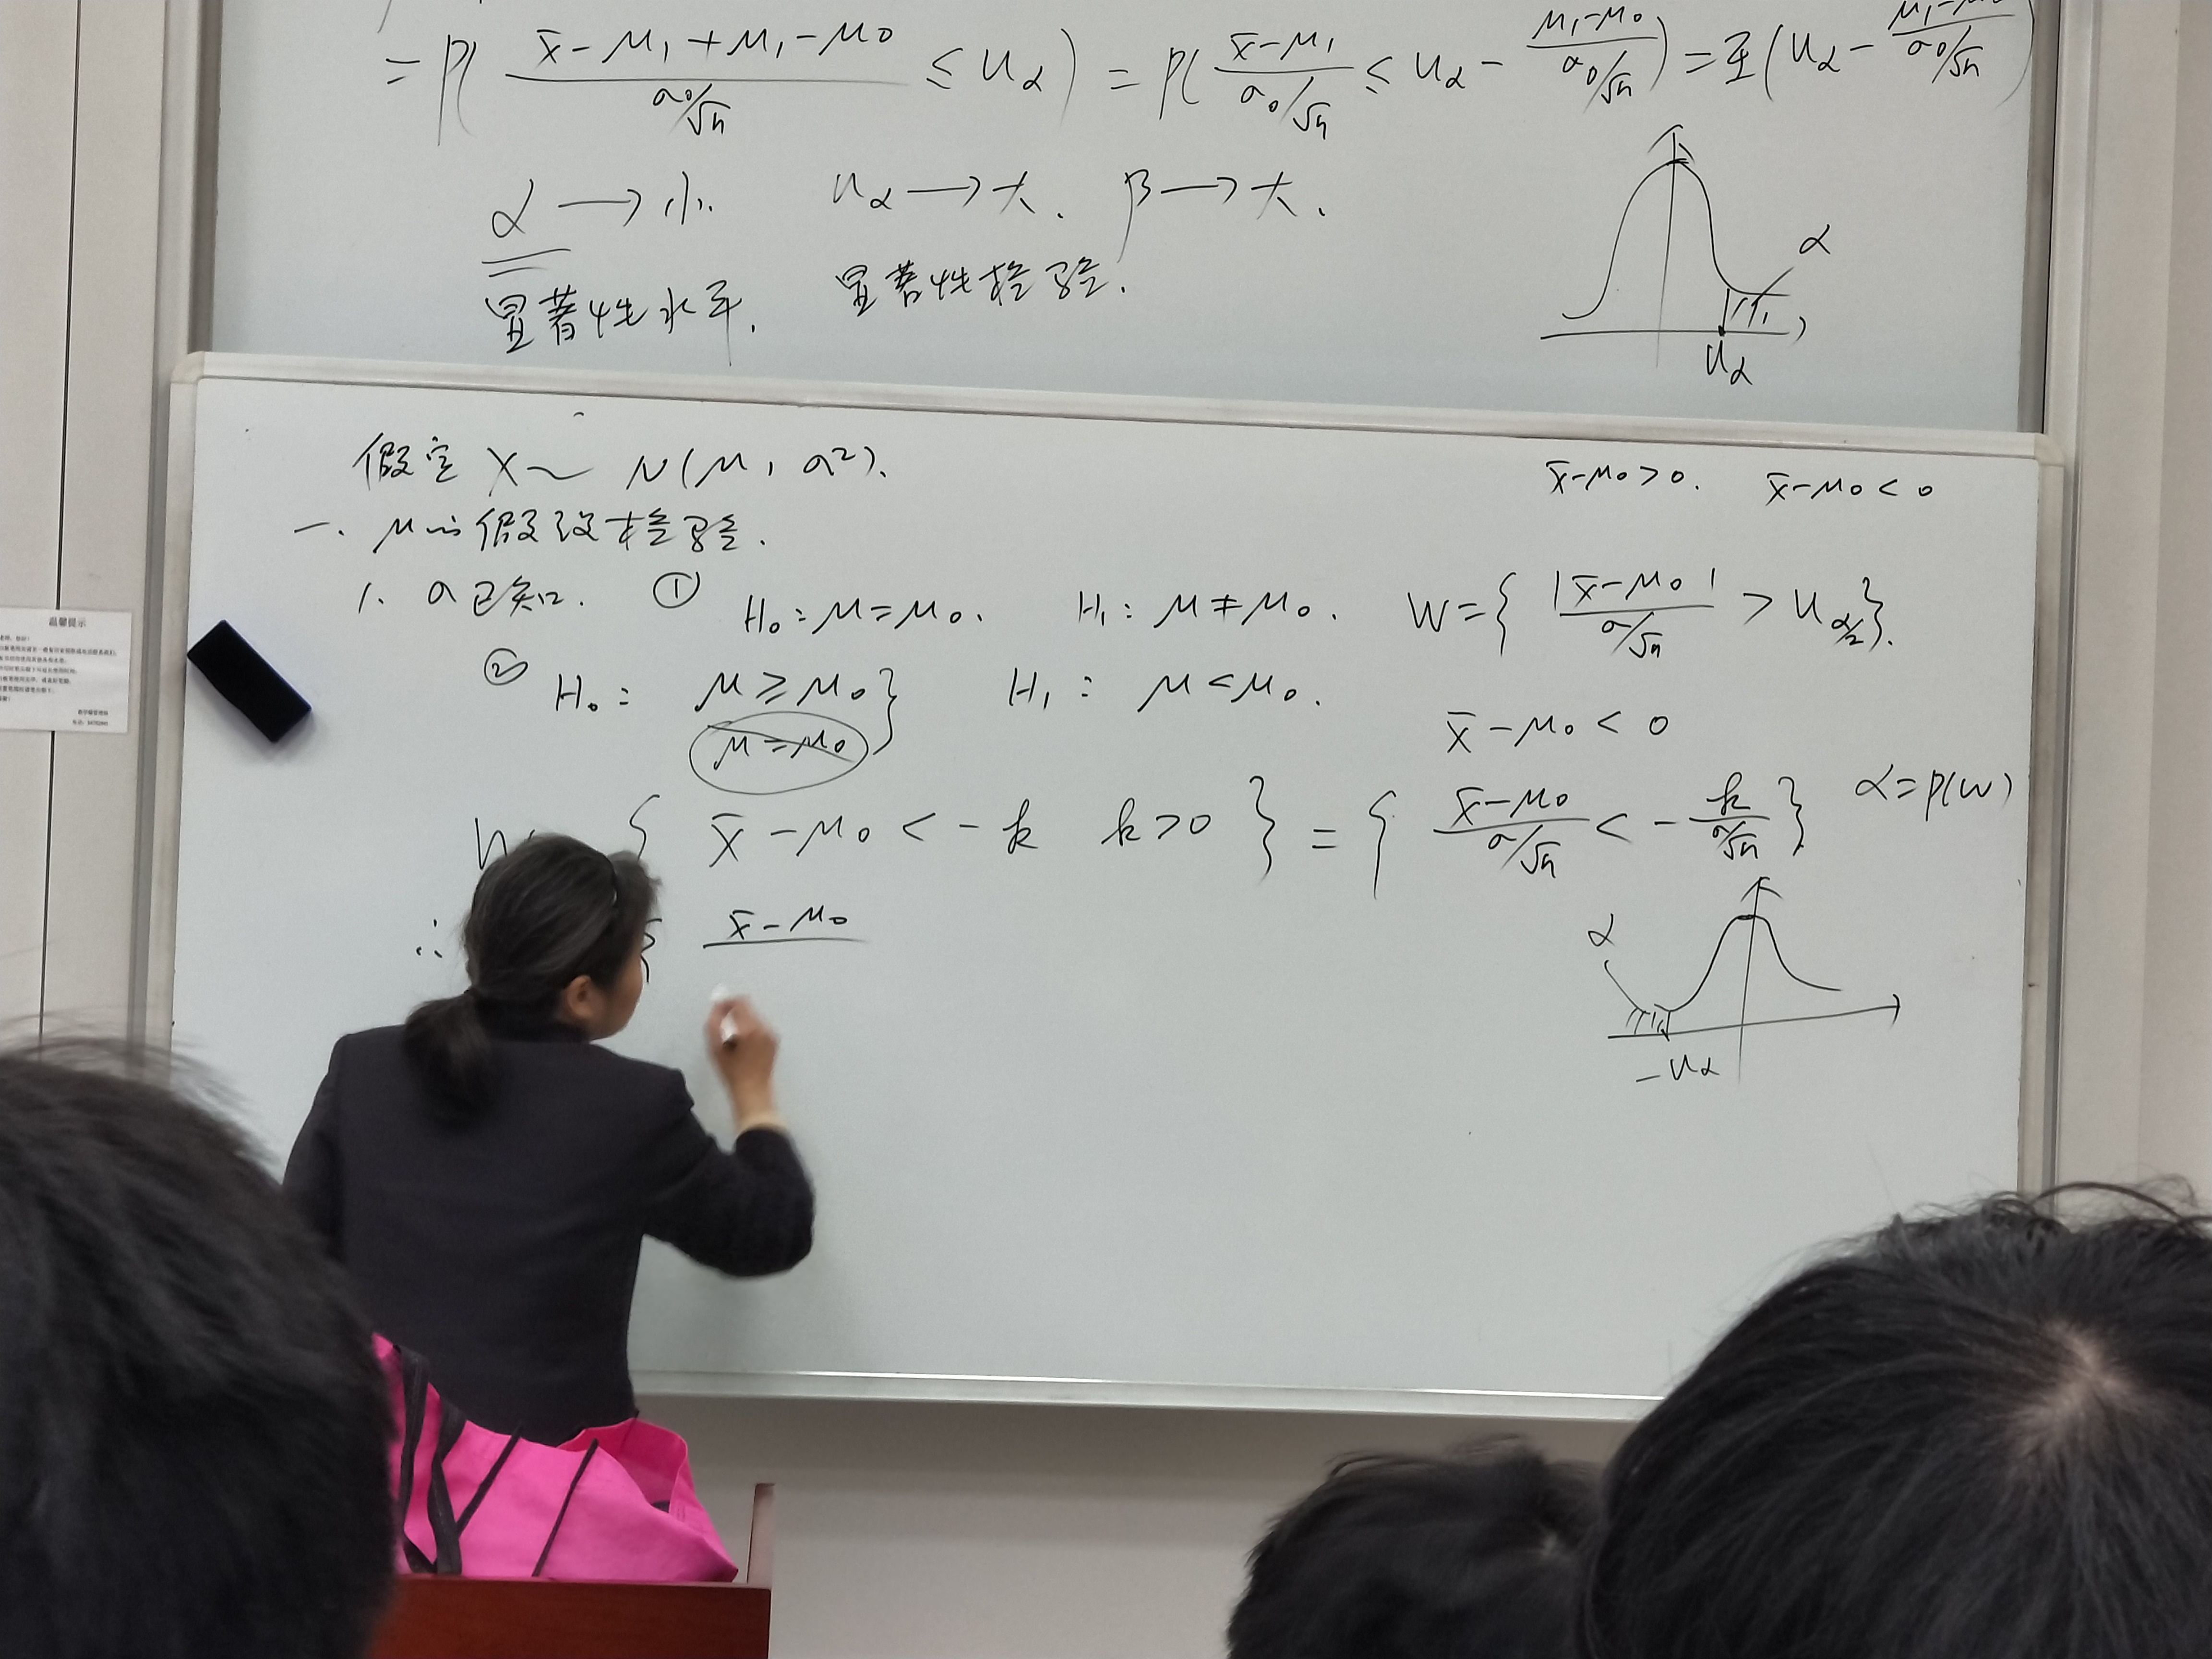 = P( (x̄-μ₁+μ₁-μ₀)/(σ₀/√n) ≤ u_α ) = P( (x̄-μ₁)/(σ₀/√n) ≤ u_α - (μ₁-μ₀)/(σ₀/√n) ) = Φ( u_α - (μ₁-μ₀)/(σ₀/√n) )
α → 小. u_α → 大. β → 大.
显著性水平. 显著性检验.
α
u_α
假定 X ~ N(μ, σ²).
x̄-μ₀>0. x̄-μ₀<0
一. μ的假设检验.
1. σ已知. ① H₀: μ=μ₀. H₁: μ≠μ₀. W={ |x̄-μ₀|/(σ/√n) > u_{α/2} }.
② H₀: μ≥μ₀ } H₁: μ<μ₀.
μ=μ₀
x̄-μ₀<0
W { x̄-μ₀ < -k k>0 } = { (x̄-μ₀)/(σ/√n) < - k/(σ/√n) } α=P(W)
∴ { x̄-μ₀
α
-u_α
温馨提示